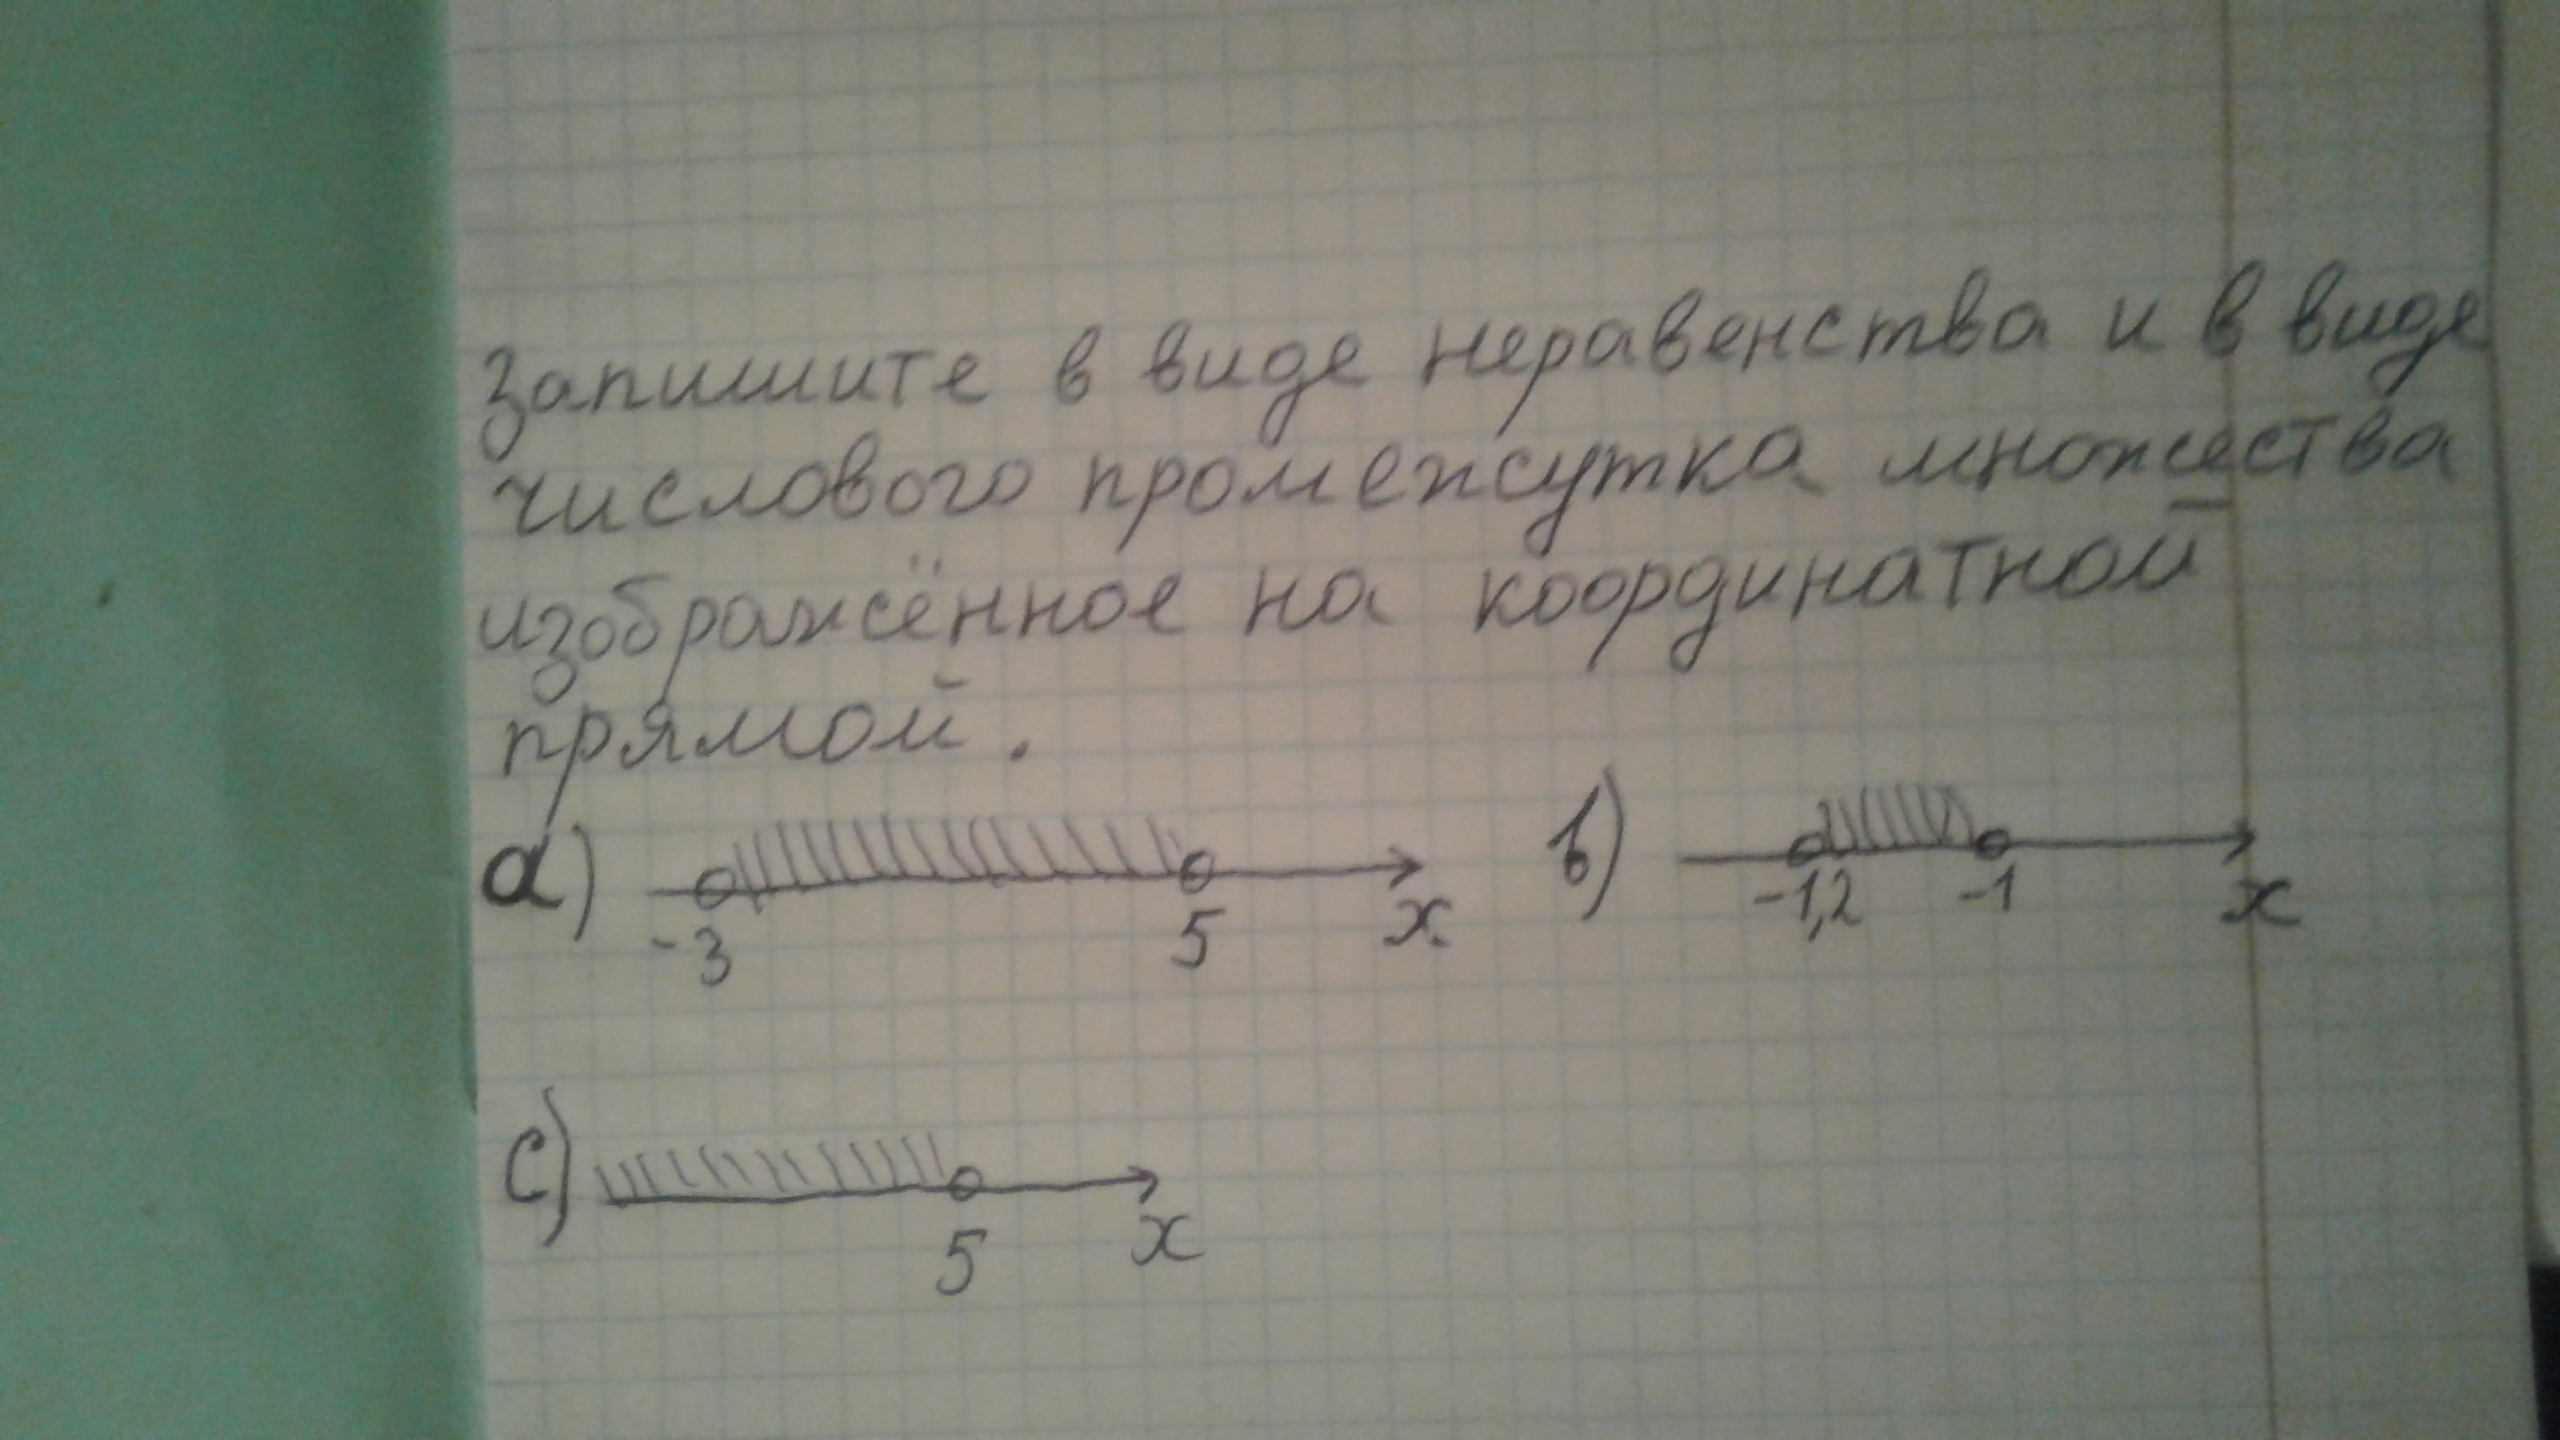 Запишите в виде неравенства и в виде
числового промежутка множества
изображённое на координатной
прямой.
а) -3 5 x в) -1,2 -1 x
с) 5 x